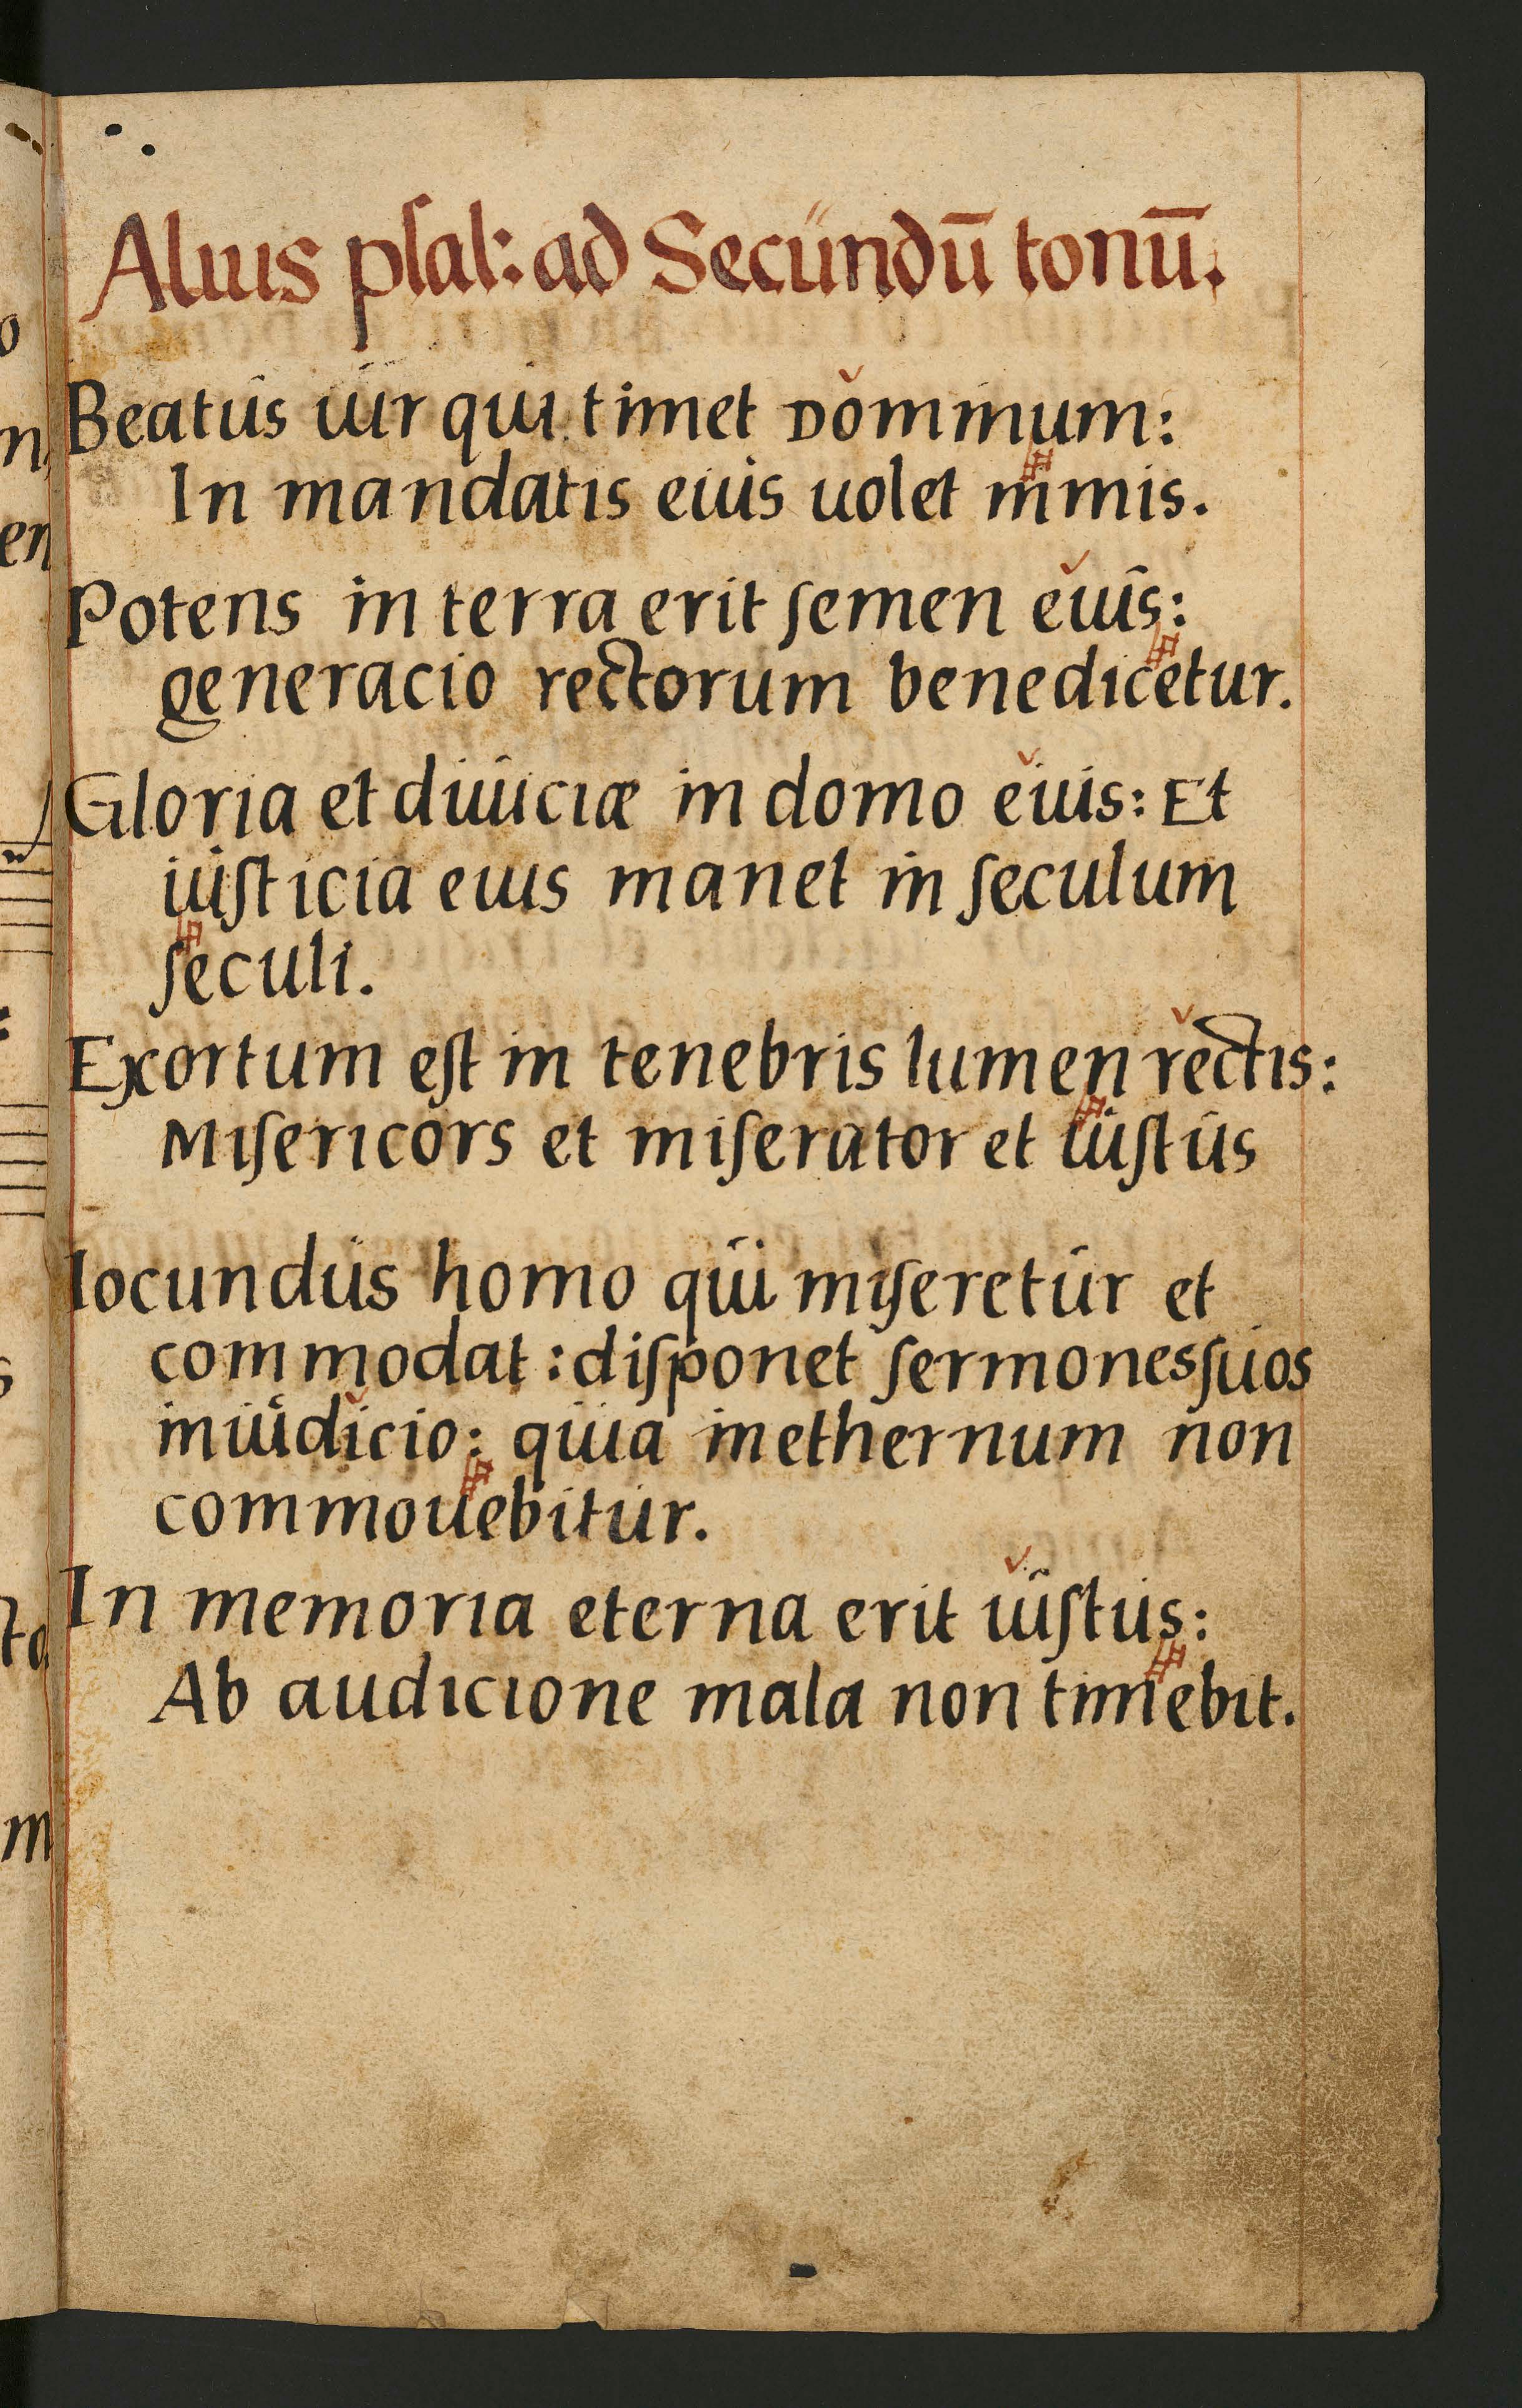 Alius pſal: ad Secundū tonū.
Beatus uir qui timet Dominum:
In mandatis eius uolet nimis.
Potens in terra erit ſemen eius:
generacio rectorum benedicetur.
Gloria et diuiciæ in domo eius: Et
iuſticia eius manet in ſeculum
ſeculi.
Exortum eſt in tenebris lumen rectis:
Miſericors et miſerator et iuſtus
Iocundus homo qui miſeretur et
commodat: diſponet ſermones ſuos
in iudicio: quia in ethernum non
commouebitur.
In memoria eterna erit iuſtus:
Ab audicione mala non timebit.